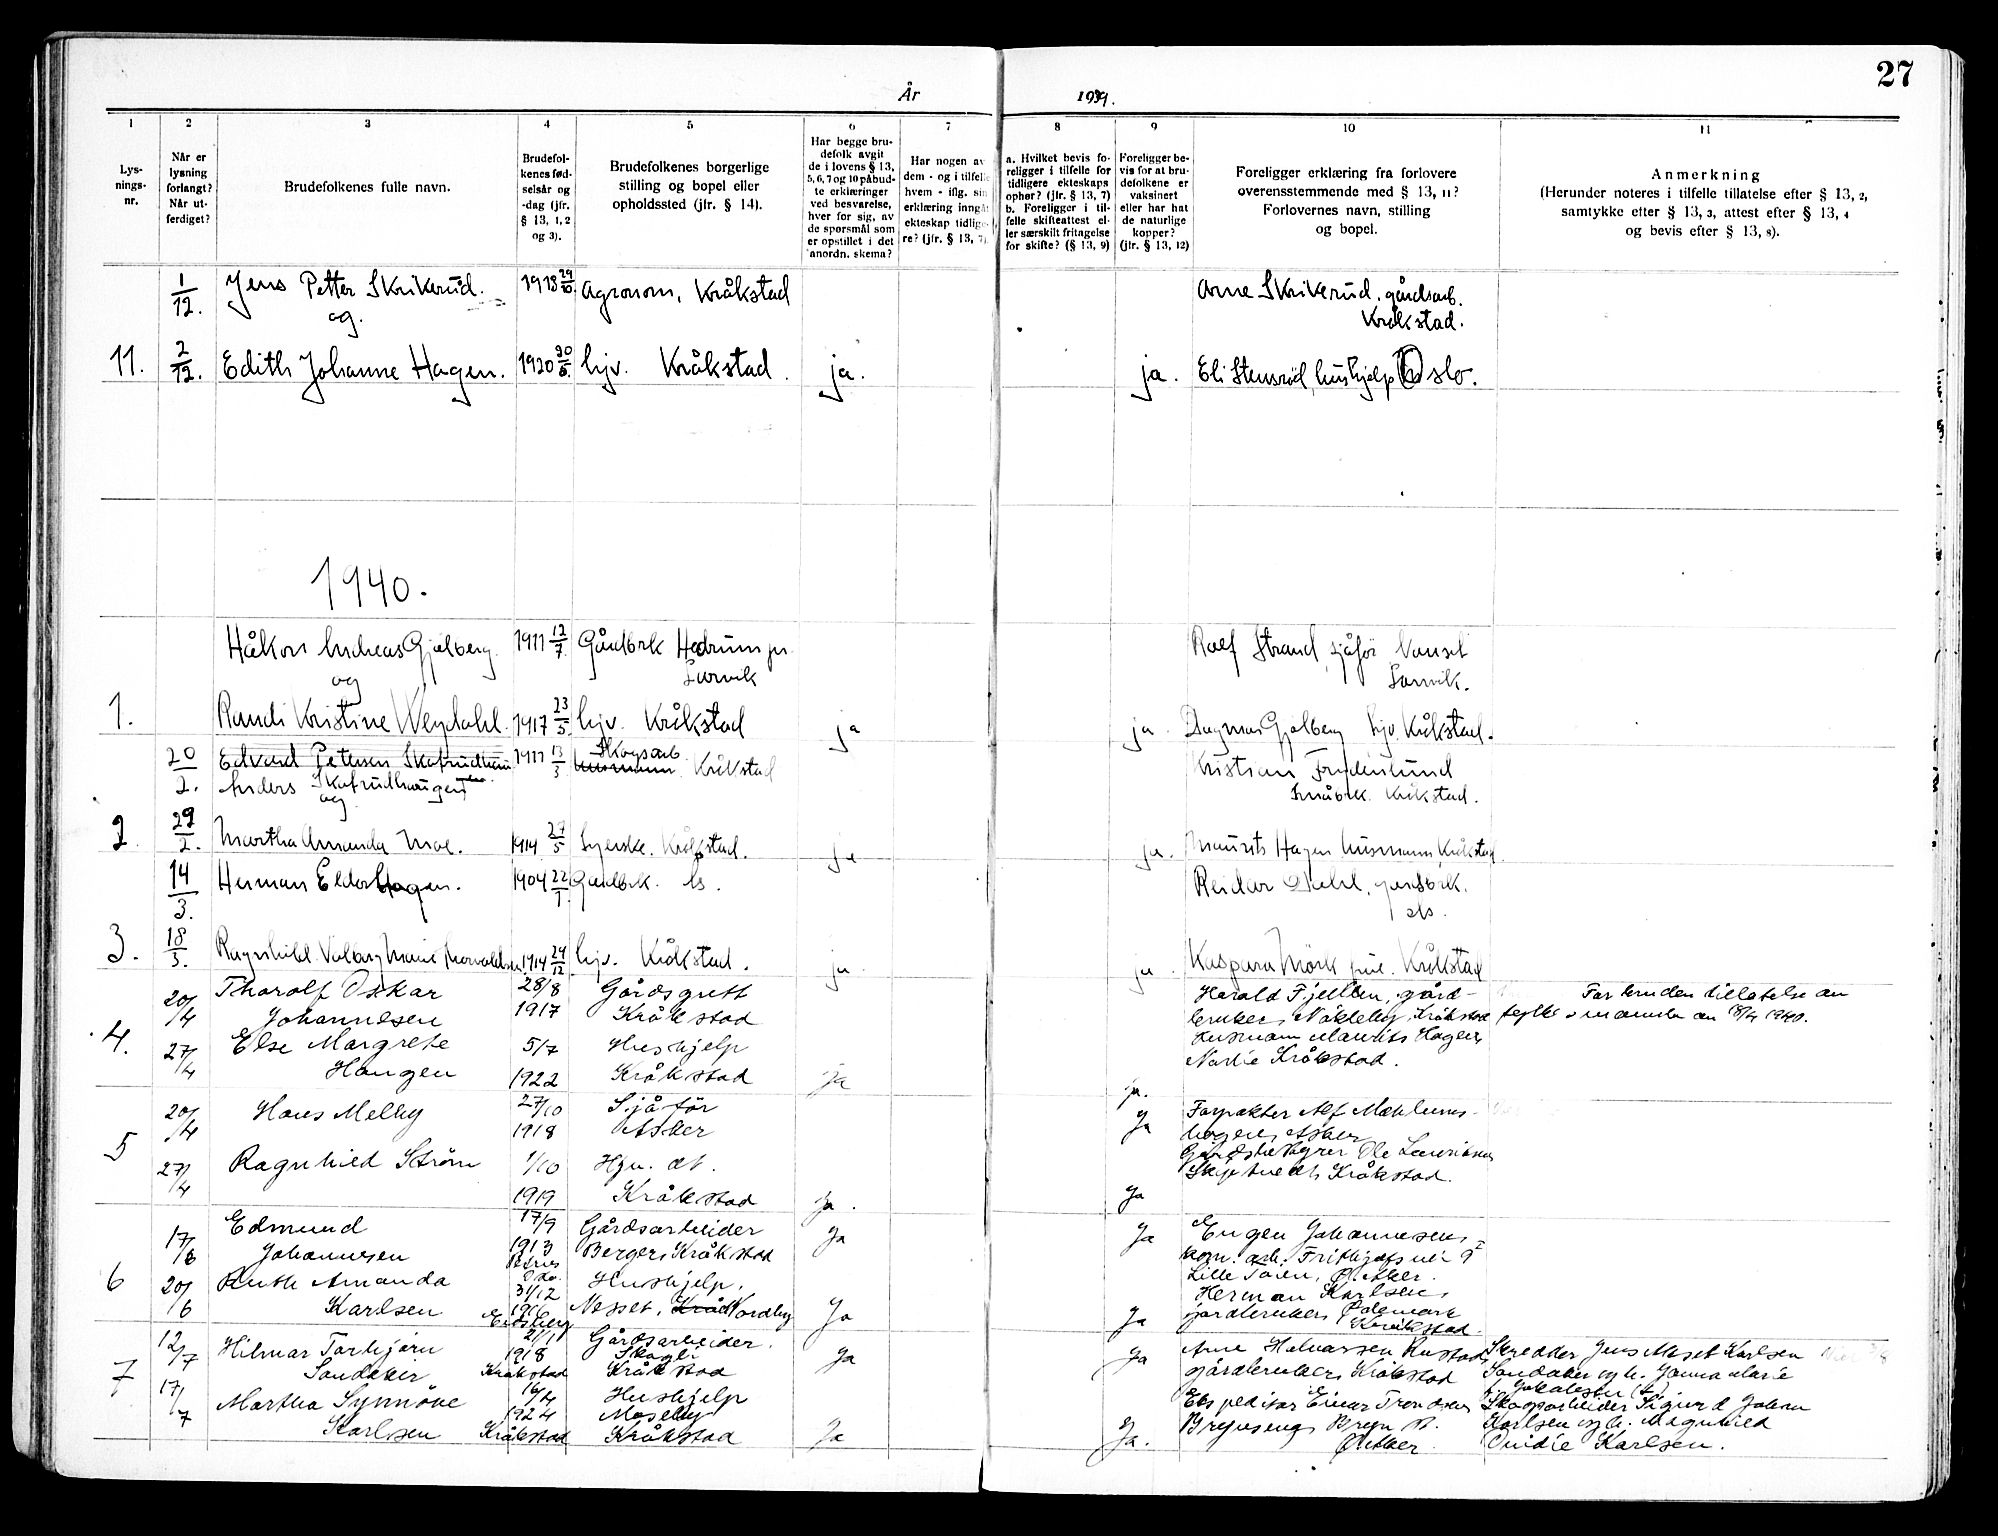 27
År 1939.
1 2 3 4 5 6 7 8 9 10 11
Lys-
nings-
nr.
Når er
lysning
forlangt?
Når ut-
ferdiget?
Brudefolkenes fulle navn.
Brudefol-
kenes fød-
selsår og
-dag (jfr.
§ 13, 1, 2
og 3).
Brudefolkenes borgerlige
stilling og bopel eller
opholdssted (jfr. § 14).
Har begge bru-
defolk avgit
de i lovens § 13,
5, 6, 7 og 10 påbud-
te erklæringer
ved besvarelse,
hver for sig, av
de spørsmål som
er opstillet i det
anordn. skema?
Har nogen av
dem - og i tilfelle
hvem - iflg. sin
erklæring inngåt
ekteskap tidlige-
re? (jfr. § 13, 7).
a. Hvilket bevis fo-
religger i tilfelle for
tidligere ekteskaps
ophør? (jfr. § 13, 7)
b. Foreligger i til-
felle skifteattest el-
ler særskilt fritagelse
for skifte? (§ 13, 9)
Foreligger be-
vis for at bru-
defolkene er
vaksinert
eller har hat
de naturlige
kopper?
(jfr. § 13, 12)
Foreligger erklæring fra forlovere
overensstemmende med § 13, 11?
Forlovernes navn, stilling
og bopel.
Anmerkning
(Herunder noteres i tilfelle tillatelse efter § 13, 2,
samtykke efter § 13, 3, attest efter § 13, 4
og bevis efter § 13, 8).
1/12. Jens Petter Skrikerud. 1918 29/10. Agronom, Kråkstad Arne Skrikerud, gårdsarb.
og. Kråkstad.
11. 2/12. Edith Johanne Hagen. 1920 hjv. Kråkstad. ja. ja. Eli Stensrød, hushjelp Oslo.
1940.
Håkon Andreas Gjelberg 1911 12/7. Gårdbrk Hedrum pr. Rolf Strand, sjåfør
og Larvik Larvik.
1. Randi Kristine Weydahl. 1917 23/5. hjv. Kråkstad ja ja. Dagmar Gjelberg hjv. Kråkstad.
20/2. Edvard Petersen 1911 13/3 Skogsarb. Kråkstad Kristian
Anders Skofrudhaugen Småbrk. Kråkstad.
og
2 29/2. Martha Amanda Moe. 1914 27/5 Syerske. Kråkstad. ja ja. Maurits Hagen husmann Kråkstad
14/3. Herman Elder Hagen. 1904 22/1. Gårdbrk. Ås. Reidar Dahl, gårdbrk.
Ås.
3. 18/3. Ragnhild Valborg Marie Thorvaldsen 1914 29/12 hjv. Kråkstad. ja ja Kaspara Mørk Kråkstad
20/4 Thorolf Oskar 28/8 Gårdsgutt Harald Fjellben, gård- For bruden tillatelse av
Johannesen 1917 Kråkstad bruker, Nøkleby, Kråkstad fylkesmannen av 18/4 1940.
4. 27/4 Else Margrete 5/7 Hushjelp Husmann Maurits Hagen
Haugen 1922 Kråkstad ja ja. Kråkstad.
20/4 Hans Melby 27/10 Sjåfør ja Forpakter Alf
1918 Asker Asker
5 27/4 Ragnhild Strøm 1/10 Hjv. dt. Ole Lauritsen
1919 Kråkstad Ja. Ja Kråkstad.
17/6 Edmund 17/9 Gårdsarbeider Ja Ja Eugen Johannesen,
Johannesen 1913 Berger, Kråkstad kom. arb. Frithjofs vei 9
6 20/6 Ruth Amanda 31/12 Hushjelp, Lille Tøien, Ø. Aker.
Karlsen 1916 Nesset, Nordby Ja Ja Herman Karlsen,
Eidsberg gårdbruker, Kråkstad.
12/7 Hilmar Torbjørn 21/1 Gårdsarbeider. Ja Ja Arne Halvorsen Rustad, Skredder Jens Maset Karlsen
Sandaker 1918 Kråkstad Skogli Kråkstad gårdbruker, Kråkstad Sandaker og h. Janna Marie
7 17/7 Martha Synnöve 16/4 Hushjelp Ekspeditør Einar Skogsarbeider Sigurd Johan
1924 Moseby Karlsen og h. Magnhild
Karlsen Kråkstad Kråkstad Ja Ja. Ø. Aker. Ovidie Karlsen.